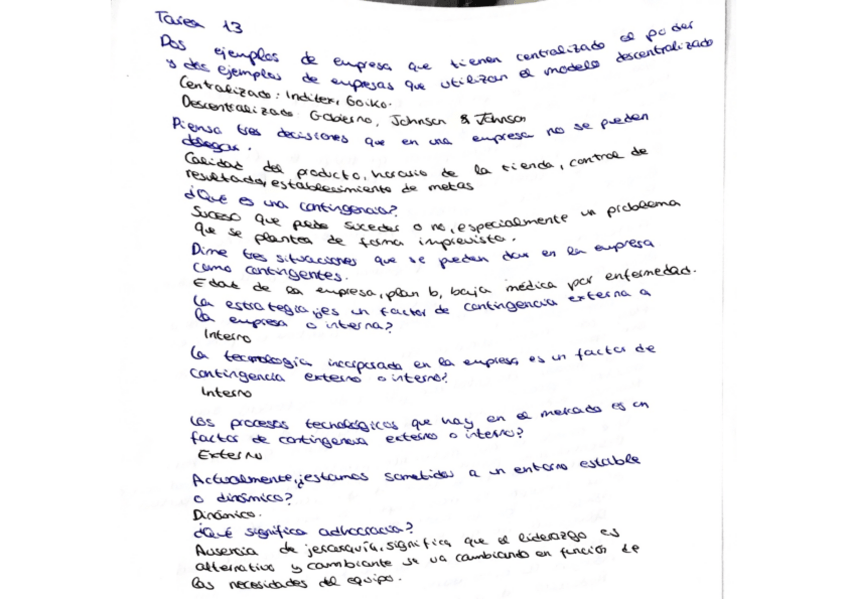 Tarea 13
Dos ejemplos de empresa que tienen centralizado el poder
y dos ejemplos de empresas que utilizan el modelo descentralizado
Centralizado: Inditex, Goiko.
Descentralizado Gobierno, Johnson & Johnson
Piensa tres decisiones que en una empresa no se pueden
delegar.
Calidad del producto, horario de la tienda, control de
resultados, establecimiento de metas
¿Qué es una contingencia?
Suceso que puede suceder o no, especialmente un problema
que se plantea de forma imprevista.
Dime tres situaciones que se puedan dar en la empresa
como contingentes.
Edad de la empresa, plan b, baja médica por enfermedad.
La estrategia, ¿es un factor de contingencia externa a
la empresa o interna?
Interno
La tecnología incorporada en la empresa es un factor de
contingencia externo o interno?
Interno
Los procesos tecnológicos que hay en el mercado es un
factor de contingencia externo o interno?
Externo
Actualmente, ¿estamos sometidos a un entorno estable
o dinámico?
Dinámico.
¿Qué significa adhocracia?
Ausencia de jerarquía, significa que el liderazgo es
alternativo y cambiante se va cambiando en función de
las necesidades del equipo.